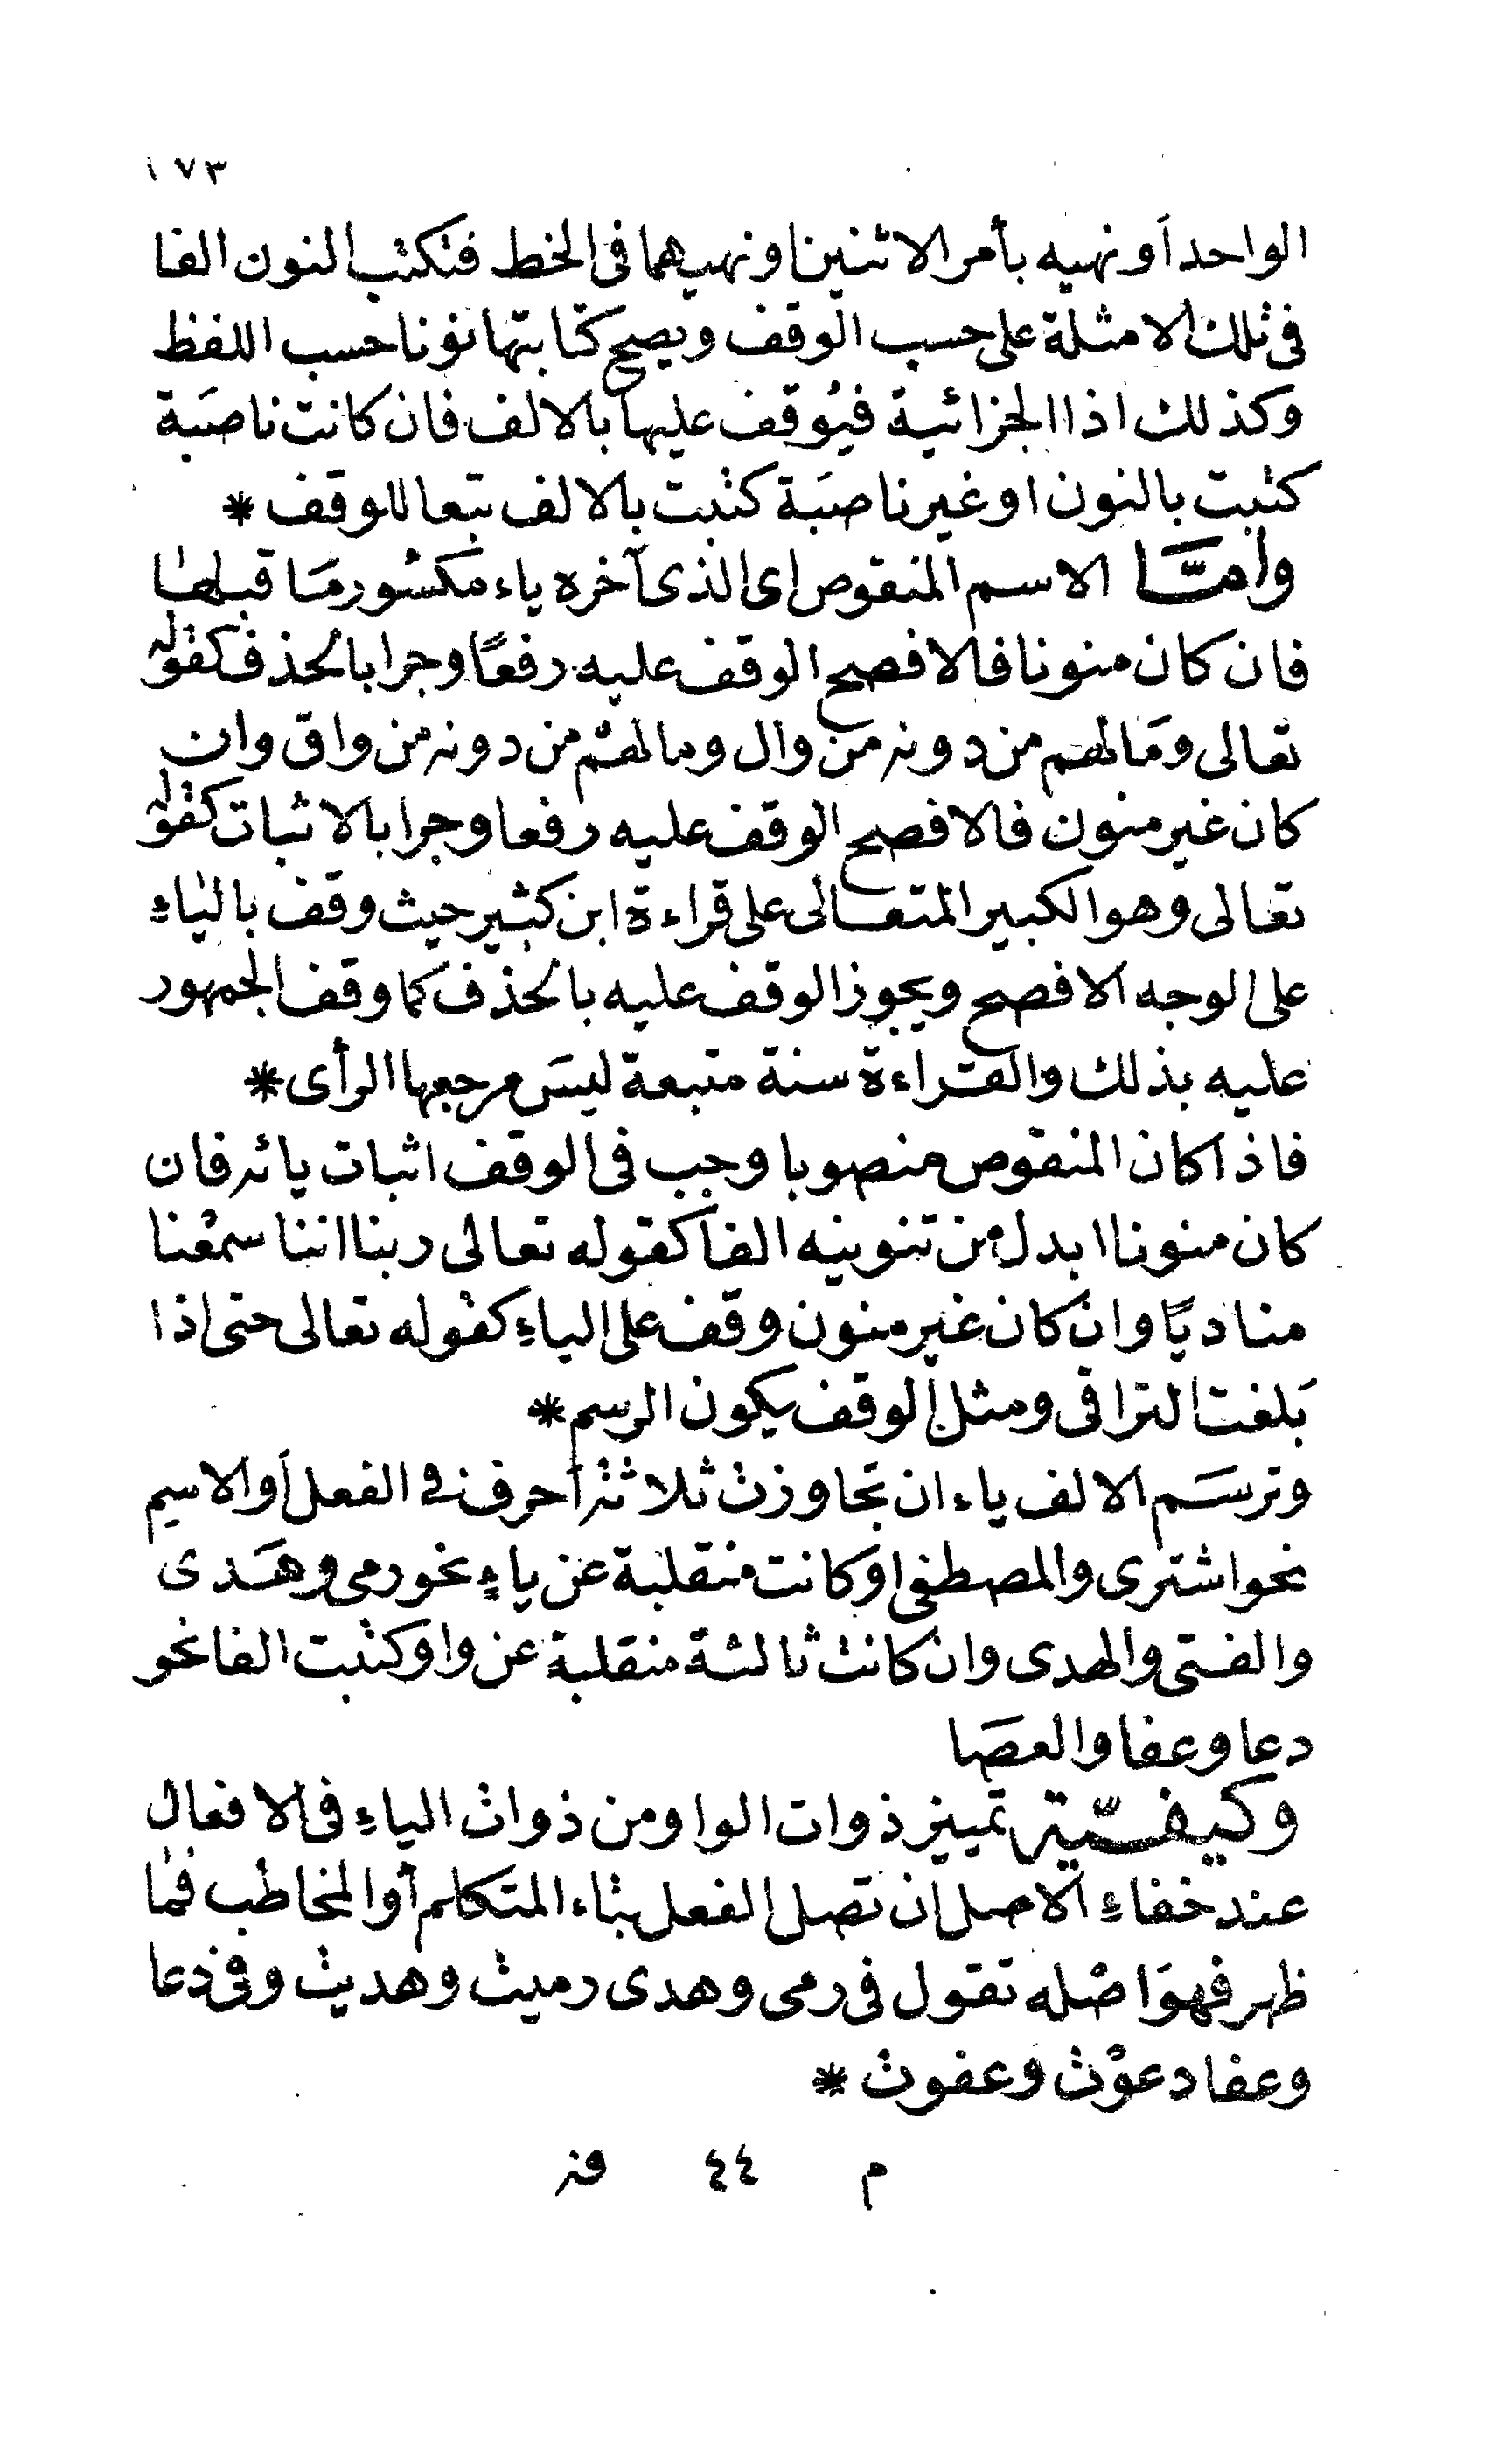 ١٧٣
الواحد أو نهيه بأمر الاثنين أو نهيهما فى الخط فتكتب النون الفا
فى تلك الامثلة على حسب الوقف ويصح كتابتها نونا حسب اللفظ
وكذلك اذا الجزائية فيُوقف عليها بالالف فان كانت ناصَبة
كتبت بالنون او غير ناصبَة كتبت بالالف تبعا للوقف *
وامَّا الاسم المنقوص اى الذى آخره ياء مكسُور مَا قبلها
فان كان منونا فالافصح الوقف عليه رفعًا وجرا بالحذف كقوله
تعالى ومَا لهم من دونه من وال وما لهم من دونه من واق وان
كان غير منون فالافصح الوقف عليه رفعا وجرا بالاثبات كقوله
تعالى وهو الكبير المتعالى على قراءة ابن كثير حيث وقف بالياءِ
على الوجه الافصح ويجوز الوقف عليه بالحذف كما وقف الجمهور
عليه بذلك والقراءة سنة متبعة ليسَ مرجعها الرأى *
فاذا كان المنقوص منصوبا وجب فى الوقف اثبات يائه فان
كان منونا ابدل من تنوينه الفا كقوله تعالى ربنا اننا سمعْنا
مناديًا وان كان غير منون وقف على الياءِ كقوله تعالى حتى اذا
بَلغت التراقى ومثل الوقف يكون الرسم *
وترسَم الالف ياء ان تجاوزت ثلاثة أحرف فى الفعل أو الاسم
نحو اشترى والمصطفى او كانت منقلبة عن ياءٍ نحو رمى وهَدى
والفتى والهدى وان كانت ثالثة منقلبة عن واو كتبت الفا نحو
دعا وعفا والعصَا
وكيفيّة تمييز ذوات الواو من ذوات الياءِ فى الافعال
عند خفاءِ الاصل ان تصل الفعل بتاء المتكلم أو المخاطب فمَا
ظهر فهوَ اصْله تقول فى رمى وهدى رميت وهديت وفى دعا
وعفا دعوْت وعفوت *
م ٤٤ فز